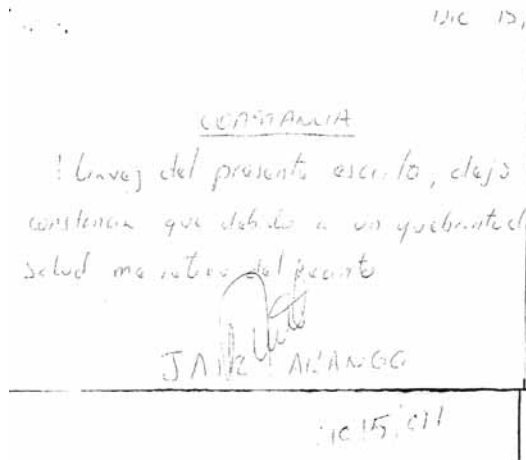 Dic 15,
CONSTANCIA
través del presente escrito, dejo
constancia que debido a un quebranto d
salud me retiro del recinto
JAIR ARANGO